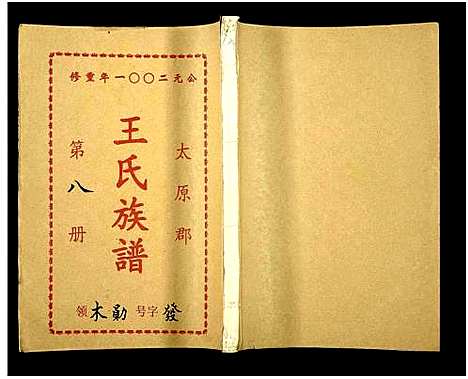 公元二〇〇一年重修
太原郡
王氏族譜
第八册
發字号勛木領